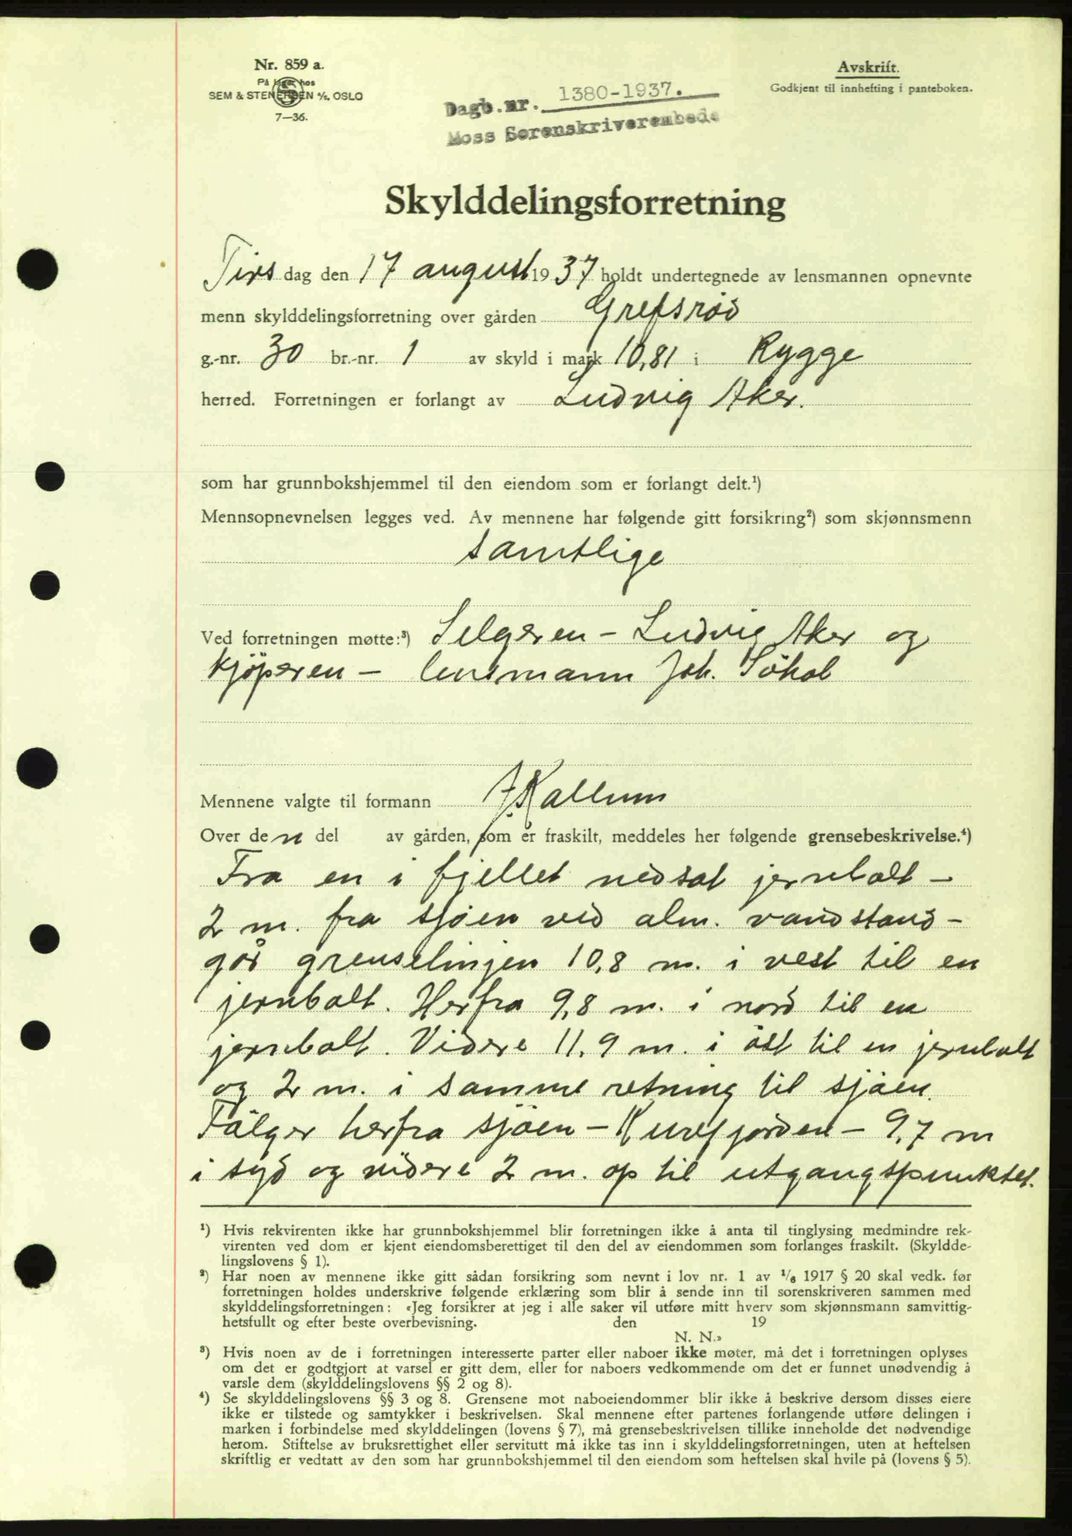 Nr. 859 a.
På lager hos
SEM & STENERSEN A/S, OSLO
7—36.
Dagb.nr. 1380-1937.
Moss Sorenskriverembede
Avskrift.
Godkjent til innhefting i panteboken.
Skylddelingsforretning
Tirs dag den 17 august 1937 holdt undertegnede av lensmannen opnevnte
menn skylddelingsforretning over gården Grefsrød
g.-nr. 30 br.-nr. 1 av skyld i mark 10,81 i Rygge
herred. Forretningen er forlangt av Ludvig Aker.
som har grunnbokshjemmel til den eiendom som er forlangt delt.¹)
Mennsopnevnelsen legges ved. Av mennene har følgende gitt forsikring²) som skjønnsmenn
samtlige
Ved forretningen møtte:³) Selgeren – Ludvig Aker og
kjöperen – lensmann Joh. Sökol
Mennene valgte til formann J. Kallum
Over den del av gården, som er fraskilt, meddeles her følgende grensebeskrivelse.⁴)
Fra en i fjellet nedsat jernbolt –
2 m. fra sjöen ved alm. vandstand –
går grenselinjen 10,8 m. i vest til en
jernbolt. Herfra 9,8 m. i nord til en
jernbolt. Videre 11,9 m. i öst til en jernbolt
og 2 m. i samme retning til sjöen.
Fölger herfra sjöen – Kurefjorden – 9,7 m
i syd og videre 2 m. op til utgangspunktet.
¹) Hvis rekvirenten ikke har grunnbokshjemmel blir forretningen ikke å anta til tinglysing medmindre rek-
virenten ved dom er kjent eiendomsberettiget til den del av eiendommen som forlanges fraskilt. (Skyldde-
lingslovens § 1).
²) Har noen av mennene ikke gitt sådan forsikring som nevnt i lov nr. 1 av 1/6 1917 § 20 skal vedk. før
forretningen holdes underskrive følgende erklæring som blir å sende inn til sorenskriveren sammen med
skylddelingsforretningen: «Jeg forsikrer at jeg i alle saker vil utføre mitt hverv som skjønnsmann samvittig-
hetsfullt og efter beste overbevisning. den 19
N. N.»
³) Hvis noen av de i forretningen interesserte parter eller naboer ikke møter, må det i forretningen oplyses
om det er godtgjort at varsel er gitt dem, eller for naboers vedkommende om det er funnet unødvendig å
varsle dem (skylddelingslovens §§ 2 og 8).
⁴) Se skylddelingslovens §§ 3 og 8. Grensene mot naboeiendommer blir ikke å beskrive dersom disses eiere
ikke er tilstede og samtykker i beskrivelsen. Skal mennene efter partenes forlangende utføre delingen i
marken i forbindelse med skylddelingen (lovens § 7), må grensebeskrivelsen tillike inneholde det nødvendige
herom. Stiftelse av bruksrettighet eller servitutt må ikke tas inn i skylddelingsforretningen, uten at heftelsen
skriftlig er vedtatt av den som har grunnbokshjemmel til den eiendom som heftelsen skal hvile på (lovens § 5).